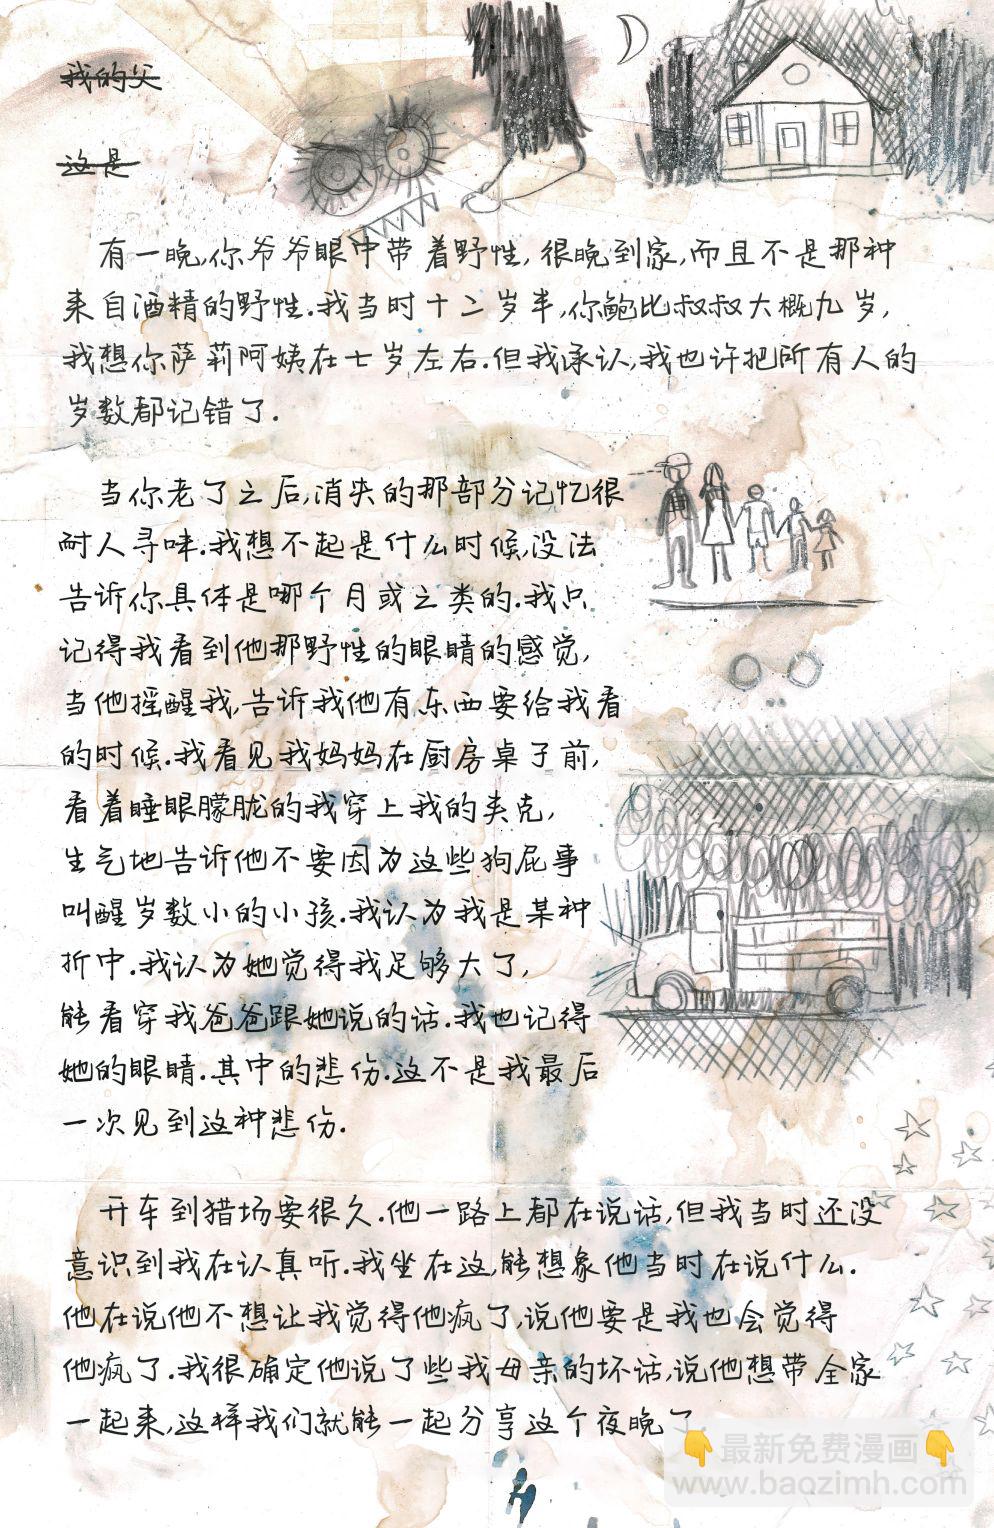 我的父
这是
有一晚,你爷爷眼中带着野性,很晚到家,而且不是那种
来自酒精的野性.我当时十二岁半,你鲍比叔叔大概九岁,
我想你萨莉阿姨在七岁左右.但我承认,我也许把所有人的
岁数都记错了.
当你老了之后,消失的那部分记忆很
耐人寻味.我想不起是什么时候,没法
告诉你具体是哪个月或之类的.我只
记得我看到他那野性的眼睛的感觉,
当他摇醒我,告诉我他有东西要给我看
的时候.我看见我妈妈在厨房桌子前,
看着睡眼朦胧的我穿上我的夹克,
生气地告诉他不要因为这些狗屁事
叫醒岁数小的小孩.我认为我是某种
折中.我认为她觉得我足够大了,
能看穿我爸爸跟她说的话.我也记得
她的眼睛.其中的悲伤.这不是我最后
一次见到这种悲伤.
开车到猎场要很久.他一路上都在说话,但我当时还没
意识到我在认真听.我坐在这,能想象他当时在说什么.
他在说他不想让我觉得他疯了,说他要是我也会觉得
他疯了.我很确定他说了些我母亲的坏话,说他想带全家
一起来,这样我们就能一起分享这个夜晚了
👇最新免费漫画👇
www.baozimh.com